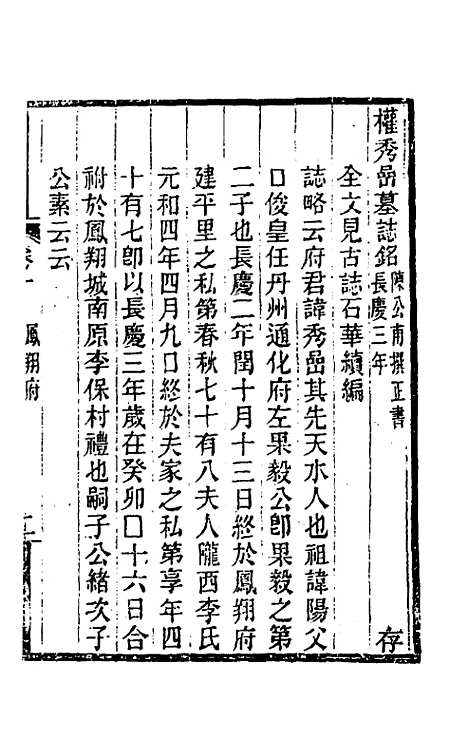 權秀嵒墓誌銘 陳公甫撰正書 長慶三年 存
全文見古誌石華續編
誌略云府君諱秀嵒其先天水人也祖諱陽父
口俊皇任丹州通化府左果毅公卽果毅之第
二子也長慶二年閏十月十三日終於鳳翔府
建平里之私第春秋七十有八夫人隴西李氏
元和四年四月九口終於夫家之私第享年四
十有七卽以長慶三年歲在癸卯囗十六日合
祔於鳳翔城南原李保村禮也嗣子公緒次子
公素云云
鳳翔府